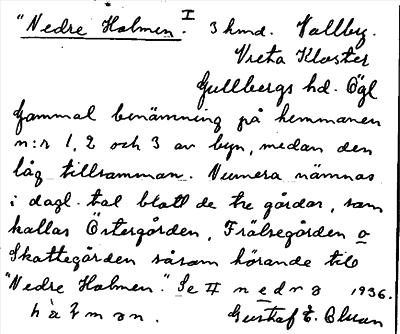 "Nedre Holmen". I 3 hmd. Vallby.
Vreta Kloster
Gullbergs hd. Ögl
Gammal benämning på hemmanen
n:r 1, 2 och 3 av byn, medan den
låg tillsamman. Numera nämnas
i dagl. tal blott de tre gårdar, som
kallas Östergården, Frälsegården o
Skattegården såsom hörande till
"Nedre Holmen". Se II nedrə 1936.
hàɫmən. Gustaf E.